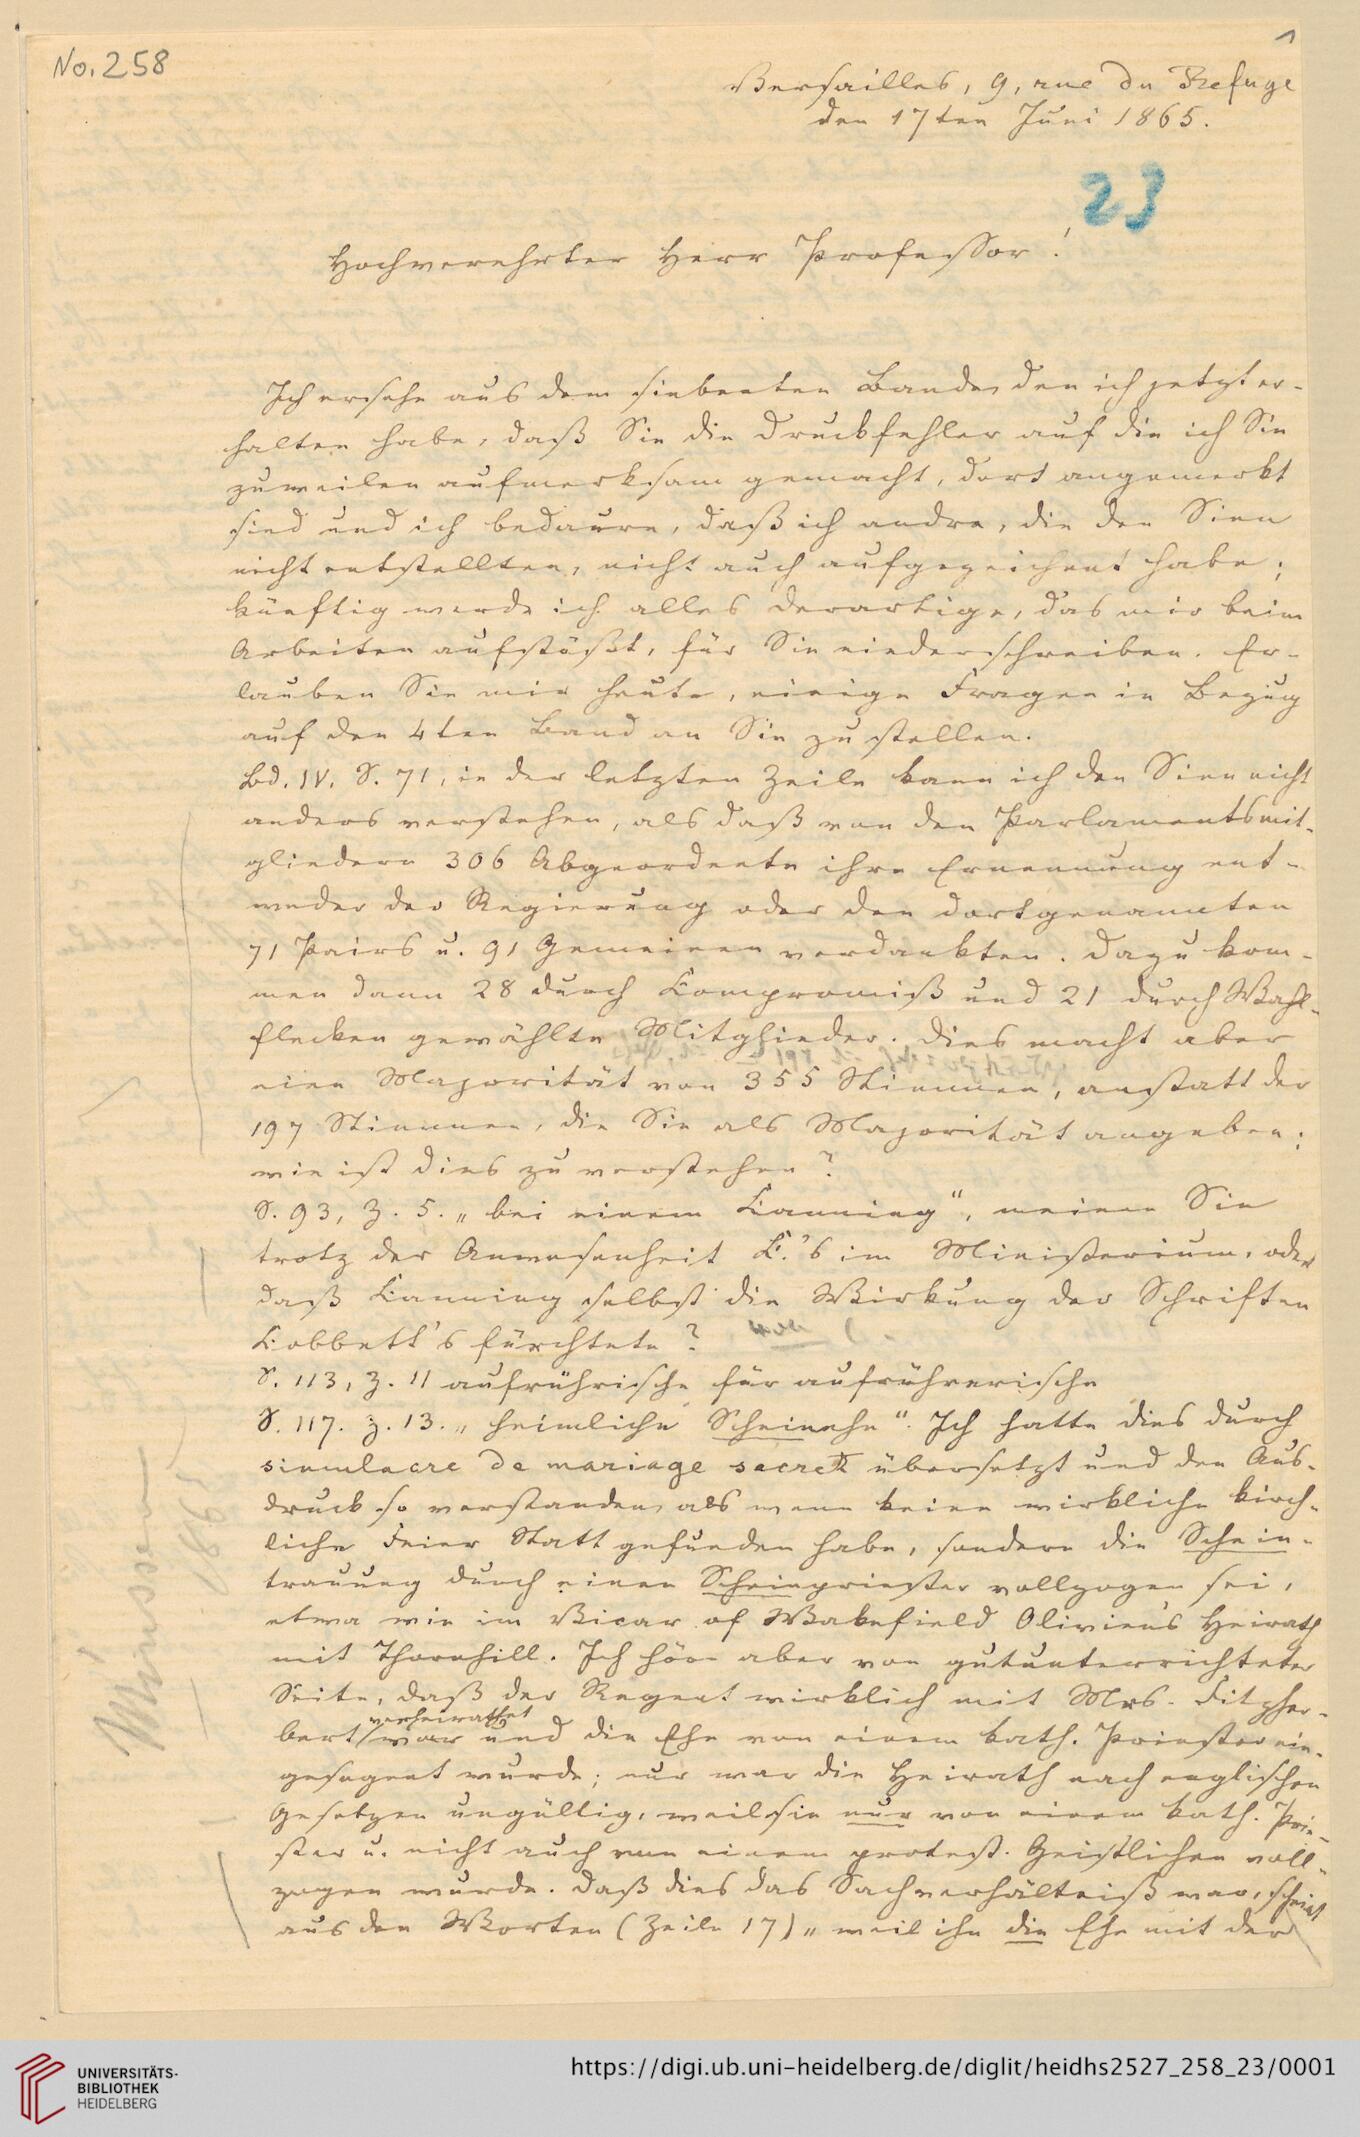 No. 258
1
Versailles, 9, rue du Refuge
den 17ten Juni 1865.
23
Hochverehrter Herr Professor!
Ich ersehe aus dem siebenten Bande, den ich jetzt er-
halten habe, daß Sie die Druckfehler auf die ich Sie
zuweilen aufmerksam gemacht, dort angemerkt
sind und ich bedaure, daß ich andre, die den Sinn
nicht entstellten, nicht auch aufgezeichnet habe;
künftig werde ich alles derartige, das mir beim
Arbeiten aufstößt, für Sie niederschreiben. Er-
lauben Sie mir heute, einige Fragen in Bezug
auf den 4ten Band an Sie zu stellen.
Bd. IV. S. 71, in der letzten Zeile kann ich den Sinn nicht
anders verstehen, als daß von den Parlamentsmit-
gliedern 306 Abgeordnete ihre Ernennung ent-
weder der Regierung oder den dortgenannten
71 Pairs u. 91 Gemeinen verdankten. Dazu kom-
men dann 28 durch Compromiß und 21 durch Wahl-
flecken gewählte Mitglieder. Dies macht aber
eine Majorität von 355 Stimmen, anstatt der
197 Stimmen, die Sie als Majorität angeben;
wie ist dies zu verstehen?
S. 93, Z. 5. „bei einem Canning“, meinen Sie
trotz der Anwesenheit C.'s im Ministerium, oder
daß Canning selbst die Wirkung der Schriften
Cobbett's fürchtete?
S. 113, Z. 11 aufrührische für aufrührerische
S. 117. Z. 13. „heimliche Scheinehe“. Ich hatte dies durch
simulacre de mariage secret übersetzt und den Aus-
druck so verstanden, als wenn keine wirkliche kirch-
liche Feier Statt gefunden habe, sondern die Schein-
trauung durch einen Scheinpriester vollzogen sei,
etwa wie im Vicar of Wakefield Olivien's Heirath
mit Thornhill. Ich höre aber von gutunterrichteter
Seite, daß der Regent wirklich mit Mrs. Fitzher-
bert verheirathet war und die Ehe von einem kath. Priester ein-
gesegnet wurde; nur war die Heirath nach englischen
Gesetzen ungültig, weil sie nur von einem kath. Prie-
ster u. nicht auch von einem protest. Geistlichen voll-
zogen wurde. Daß dies das Sachverhältniß war, scheint
aus den Worten (Zeile 17) „weil ihn die Ehe mit der
UNIVERSITÄTS-
BIBLIOTHEK
HEIDELBERG
https://digi.ub.uni-heidelberg.de/diglit/heidhs2527_258_23/0001